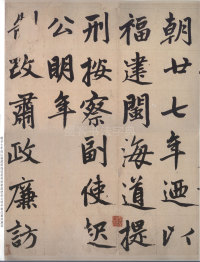 朝廿七年迺以
福建閩海道提
刑按察副使起
公明年
制改肅政廉訪